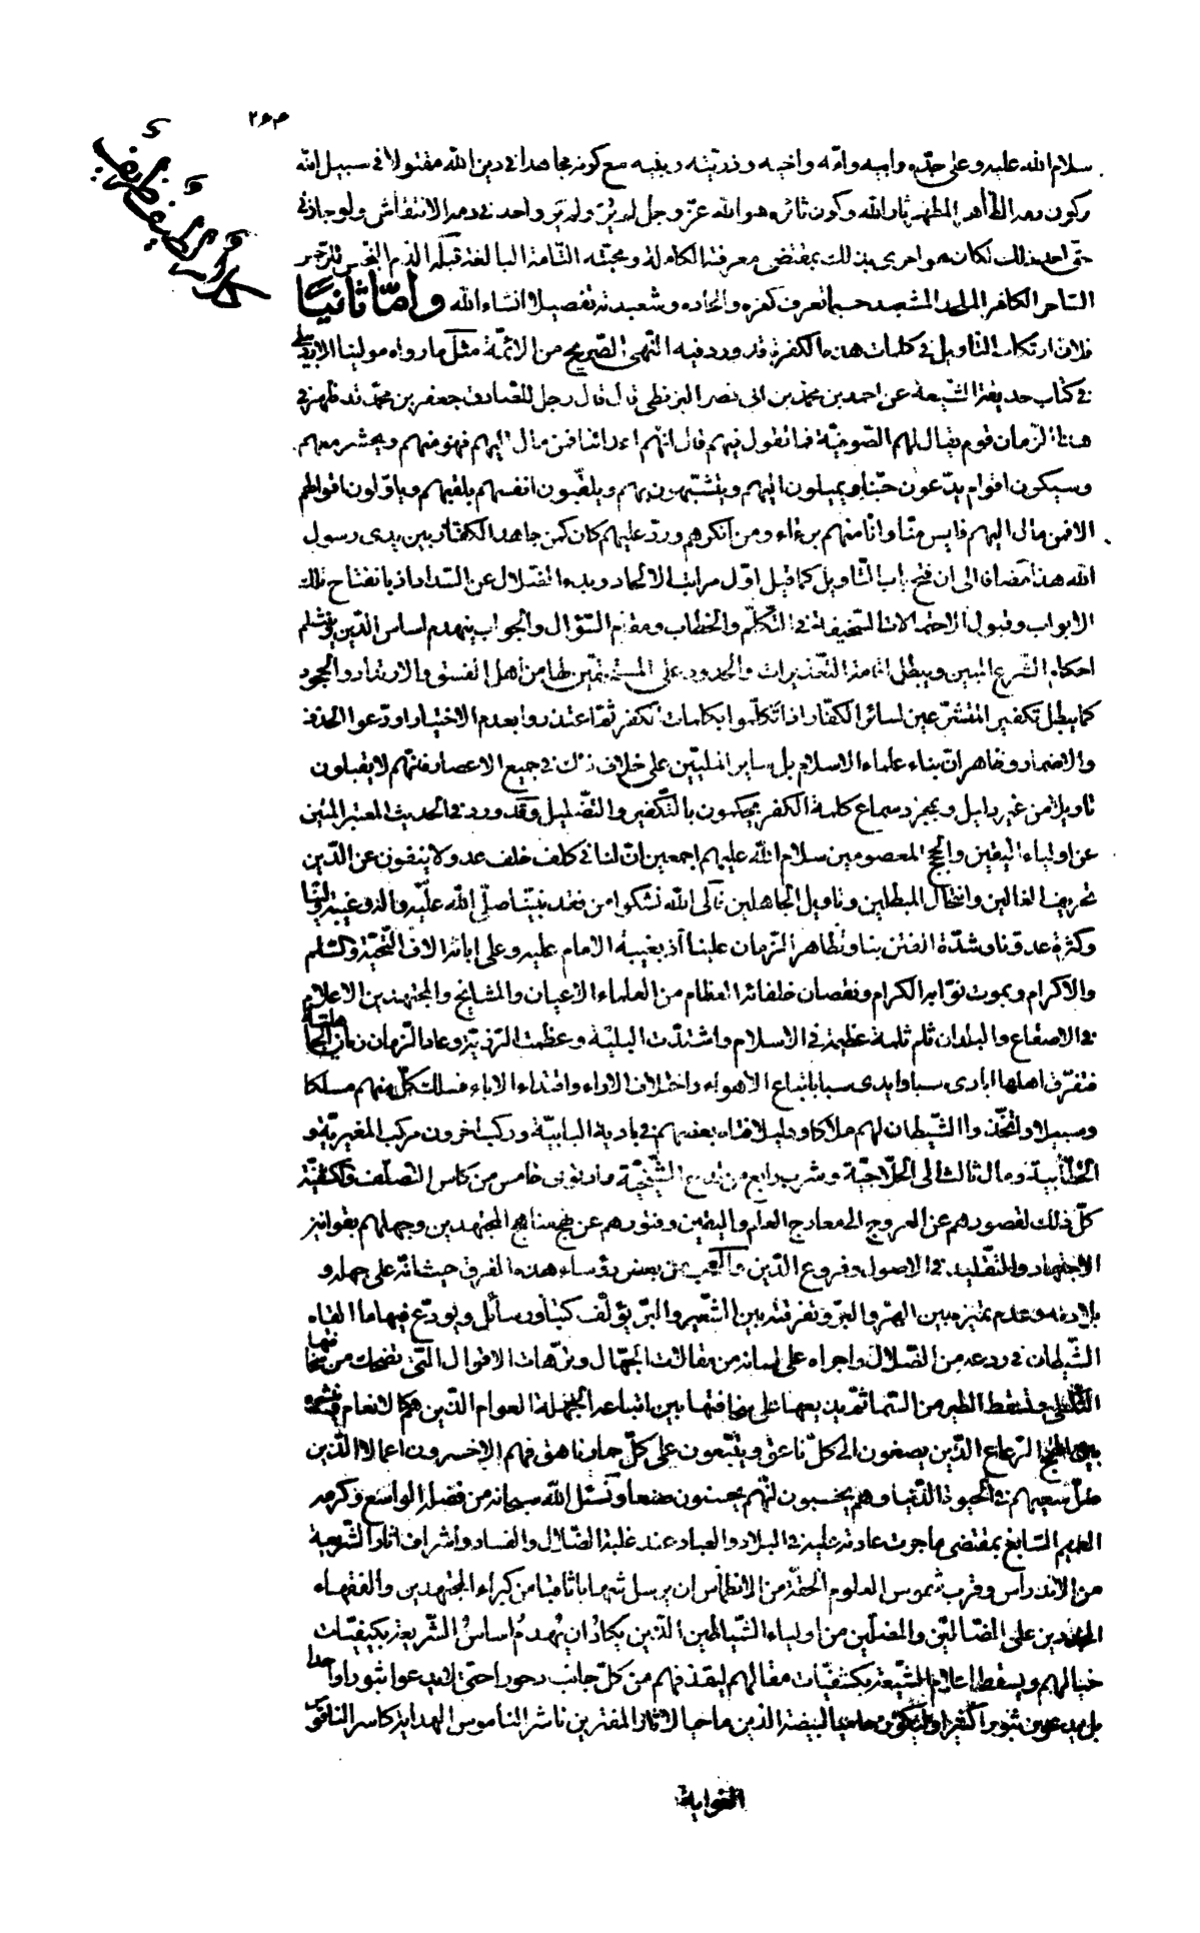 ٢٦٣
كلام لطيف ظريف
سلام الله عليه وعلى جدّه وابيه وامّه واخيه وذريّته وبنيه مع كونه مجاهدا فى دين الله مقتولا فى سبيل الله
وكون دمه الطاهر المطهر ثار الله وكون ثائره هو الله عزّ وجل لم يثر ولم ير واحد فى دمه الانتقاش ولو جاز فى
حقّ احد ذلك لكان هو احرى بذلك بمقتضى معرفته الكاملة ومحبّته التامة البالغة
الساحر الكافر الملحد المشعبد حسبما تعرف كفره والحاده وشعبدته تفصيلا انشاء الله وامّا ثانيًا
فلان ارتكاب التاويل فى كلمات هذه الكفرة قد ورد فيه النّهى الصّريح من الائمّة مثل ما رواه مولينا الاردبيلى
فى كتاب حديقة الشّيعة عن احمد بن محمّد بن ابى نصر البزنطى قال قال رجل للصّادق جعفر بن محمّد قد ظهر فى
هذا الزمان قوم يقال لهم الصّوفيّة فما تقول فيهم قال انّهم اعدائنا فمن مال اليهم فهو منهم ويحشر معهم
وسيكون اقوام يدّعون حبّنا ويميلون اليهم ويتشبّهون بهم ويلقّبون انفسهم بلقبهم وياوّلون اقوالهم
الا فمن مال اليهم فليس منّا وانّا منهم برءاء ومن انكرهم وردّ عليهم كان كمن جاهد الكفّار بين يدى رسول
الله هذا مضافا الى ان فتح باب التّاويل كما قيل اوّل مراتب الالحاد وبدء الضّلال عن السّداد اذ بانفتاح تلك
الابواب وقبول الاحتمالات السّخيفة فى التّكلّم والخطاب ومقام السّؤال والجواب ينهدم اساس الدّين وينثلم
احكام الشّرع المبين ويبطل اقامة التّعزيرات والحدود على المستحقّين لها من اهل الفسق والارتداد والجحود
كما يبطل تكفير المتشرّعين لسائر الكفّار اذا تكلّموا بكلمات الكفر ثمّ اعتذروا بعدم الاختيار او ادّعوا الحذف
والاضمار وظاهر انّ بناء علماء الاسلام بل ساير الملّيّين على خلاف ذلك فى جميع الاعصار فانّهم لا يقبلون
تاويلا من غير دليل وبمجرّد سماع كلمة الكفر يحكمون بالتّكفير والتّضليل وقد ورد فى الحديث المعتبر المتين
عن اولياء اليقين والحجج المعصومين سلام الله عليهم اجمعين انّ لنا فى كلّ خلف عدولا ينفون عن الدّين
تحريف الغالين وانتحال المبطلين وتاويل الجاهلين فالى الله نشكوا من فقد نبيّنا صلّى الله عليه واله وغيبة وليّنا
وكثرة عدوّنا وشدّة الفتن بنا وتظاهر الزّمان علينا اذ بغيبة الامام عليه وعلى ابائه الاف التّحيّة والسّلم
والاكرام وبموت نوّابه الكرام ونقصان خلفائه العظام من العلماء الاعيان والمشايخ والمجتهدين الاعلام
فى الاصقاع والبلدان ثلم ثلمة عظيمة فى الاسلام واشتدّت البليّة وعظمت الرّزيّة وعاد الزّمان زمان الجاهليّة
فتفرّق اهلها ايادى سبا وايدى سبا باتباع الاهواء واختلاف الاراء واقتداء الاباء فسلك كلّ منهم مسلكا
وسبيلا واتّخذوا الشّيطان لهم ملاكا ودليلا فتاه بعضهم فى بادية البابيّة وركب اخرون مركب المغيريّة و
الخطّابيّة ومال ثالث الى الحلّاجيّة وشرب رابع من الشّيخيّة وارتوى خامس من كاس التصلّف والكشفيّة
كلّ ذلك لقصورهم عن العروج الى معارج العلم واليقين وفتورهم عن نهج مناهج المجتهدين وجهلهم بقوانين
الاجتهاد والتّقليد فى الاصول وفروع الدّين والعجب من بعض رؤساء هذه الفرق حيث انّه على جهله و
بلادته وعدم تميزه بين الهرّ والبرّ وتفرقته بين الشّعير والبرّ يؤلّف كتبا ورسائل ويودّع فيها ما القاه
الشّيطان فى روعه من الضّلال واجراه على لسانه من مقالات الجهّال وترّهات الاقوال الّتى تضحك منها
الثّكلى وتسقط الطير من السّما ثمّ يذيعها على سخافتها بين اتباعه الجهلة العوام الّذين هم كالانعام
الهمج الرّعاع الّذين يصغون الى كلّ ناعق ويتّبعون على كلّ حمار ناهق فهم الاخسرون اعمالا الّذين
ضلّ سعيهم فى الحيوة الدّنيا وهم يحسبون انّهم يحسنون صنعا ونسئل الله سبحانه من فضله الواسع وكرمه
العميم السّابغ بمقتضى ما جرت عادته عليه فى البلاد والعباد عند غلبة الضّلال والفساد واشراف اثار الشّريعة
من الاندراس وقرب شموس العلوم الحقّة من الانطماس ان يرسل شهابا ثاقبا من كبراء المجتهدين والفقهاء
على الضّالّين والمضلّين من اولياء الشّياطين الّذين يكاد ان يُهدم اساسُ الشّريعة بكيفيّات
خيالهم ويسقط اعلام الشّيعة بكشفيّات مقالهم ليقذفهم من كلّ جانب دحورا حتّى لا يدعوا ثبورا واحدا
بل يدعون ثبورا كثيرا وليكون حاميا لبيضة الدّين ماحيا لاثار المفترين ناشرا لناموس الهداية كاسرا لناقوس
الغواية